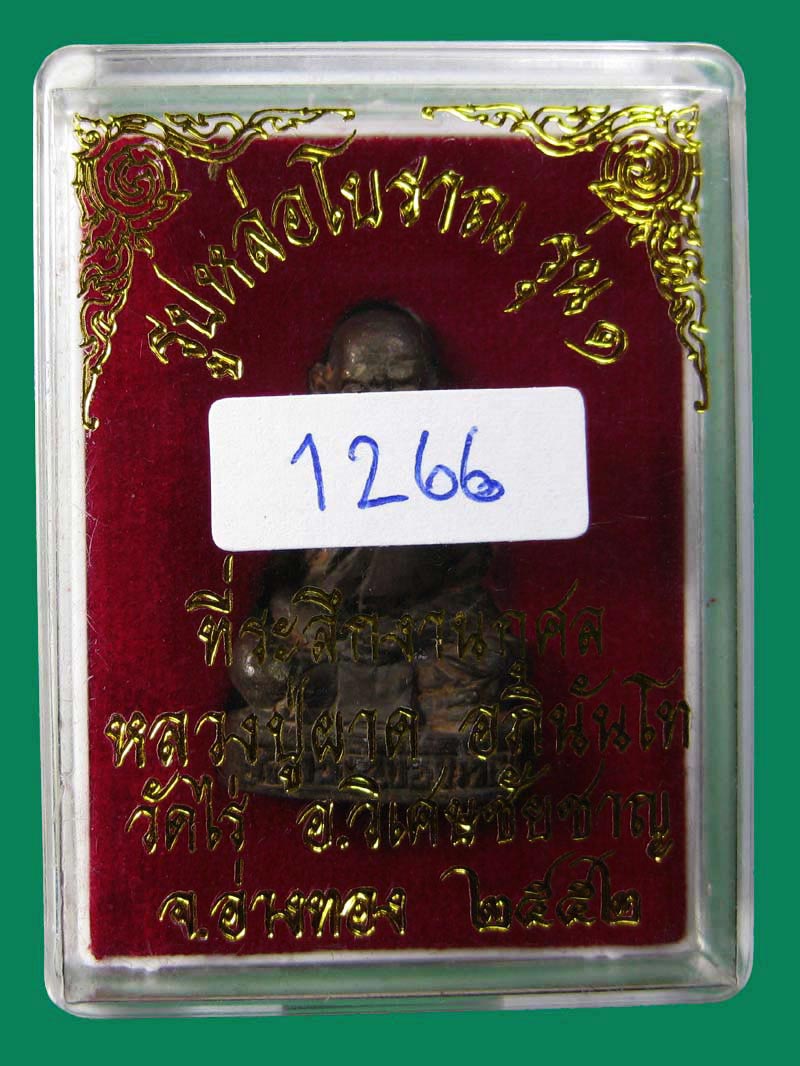 รูปหล่อโบราณ รุ่น ๑
1266
ที่ระลึกงานกุศล
หลวงปู่ผาด อภินันโท
วัดไร่ อ.วิเศษชัยชาญ
จ.อ่างทอง ๒๕๕๒